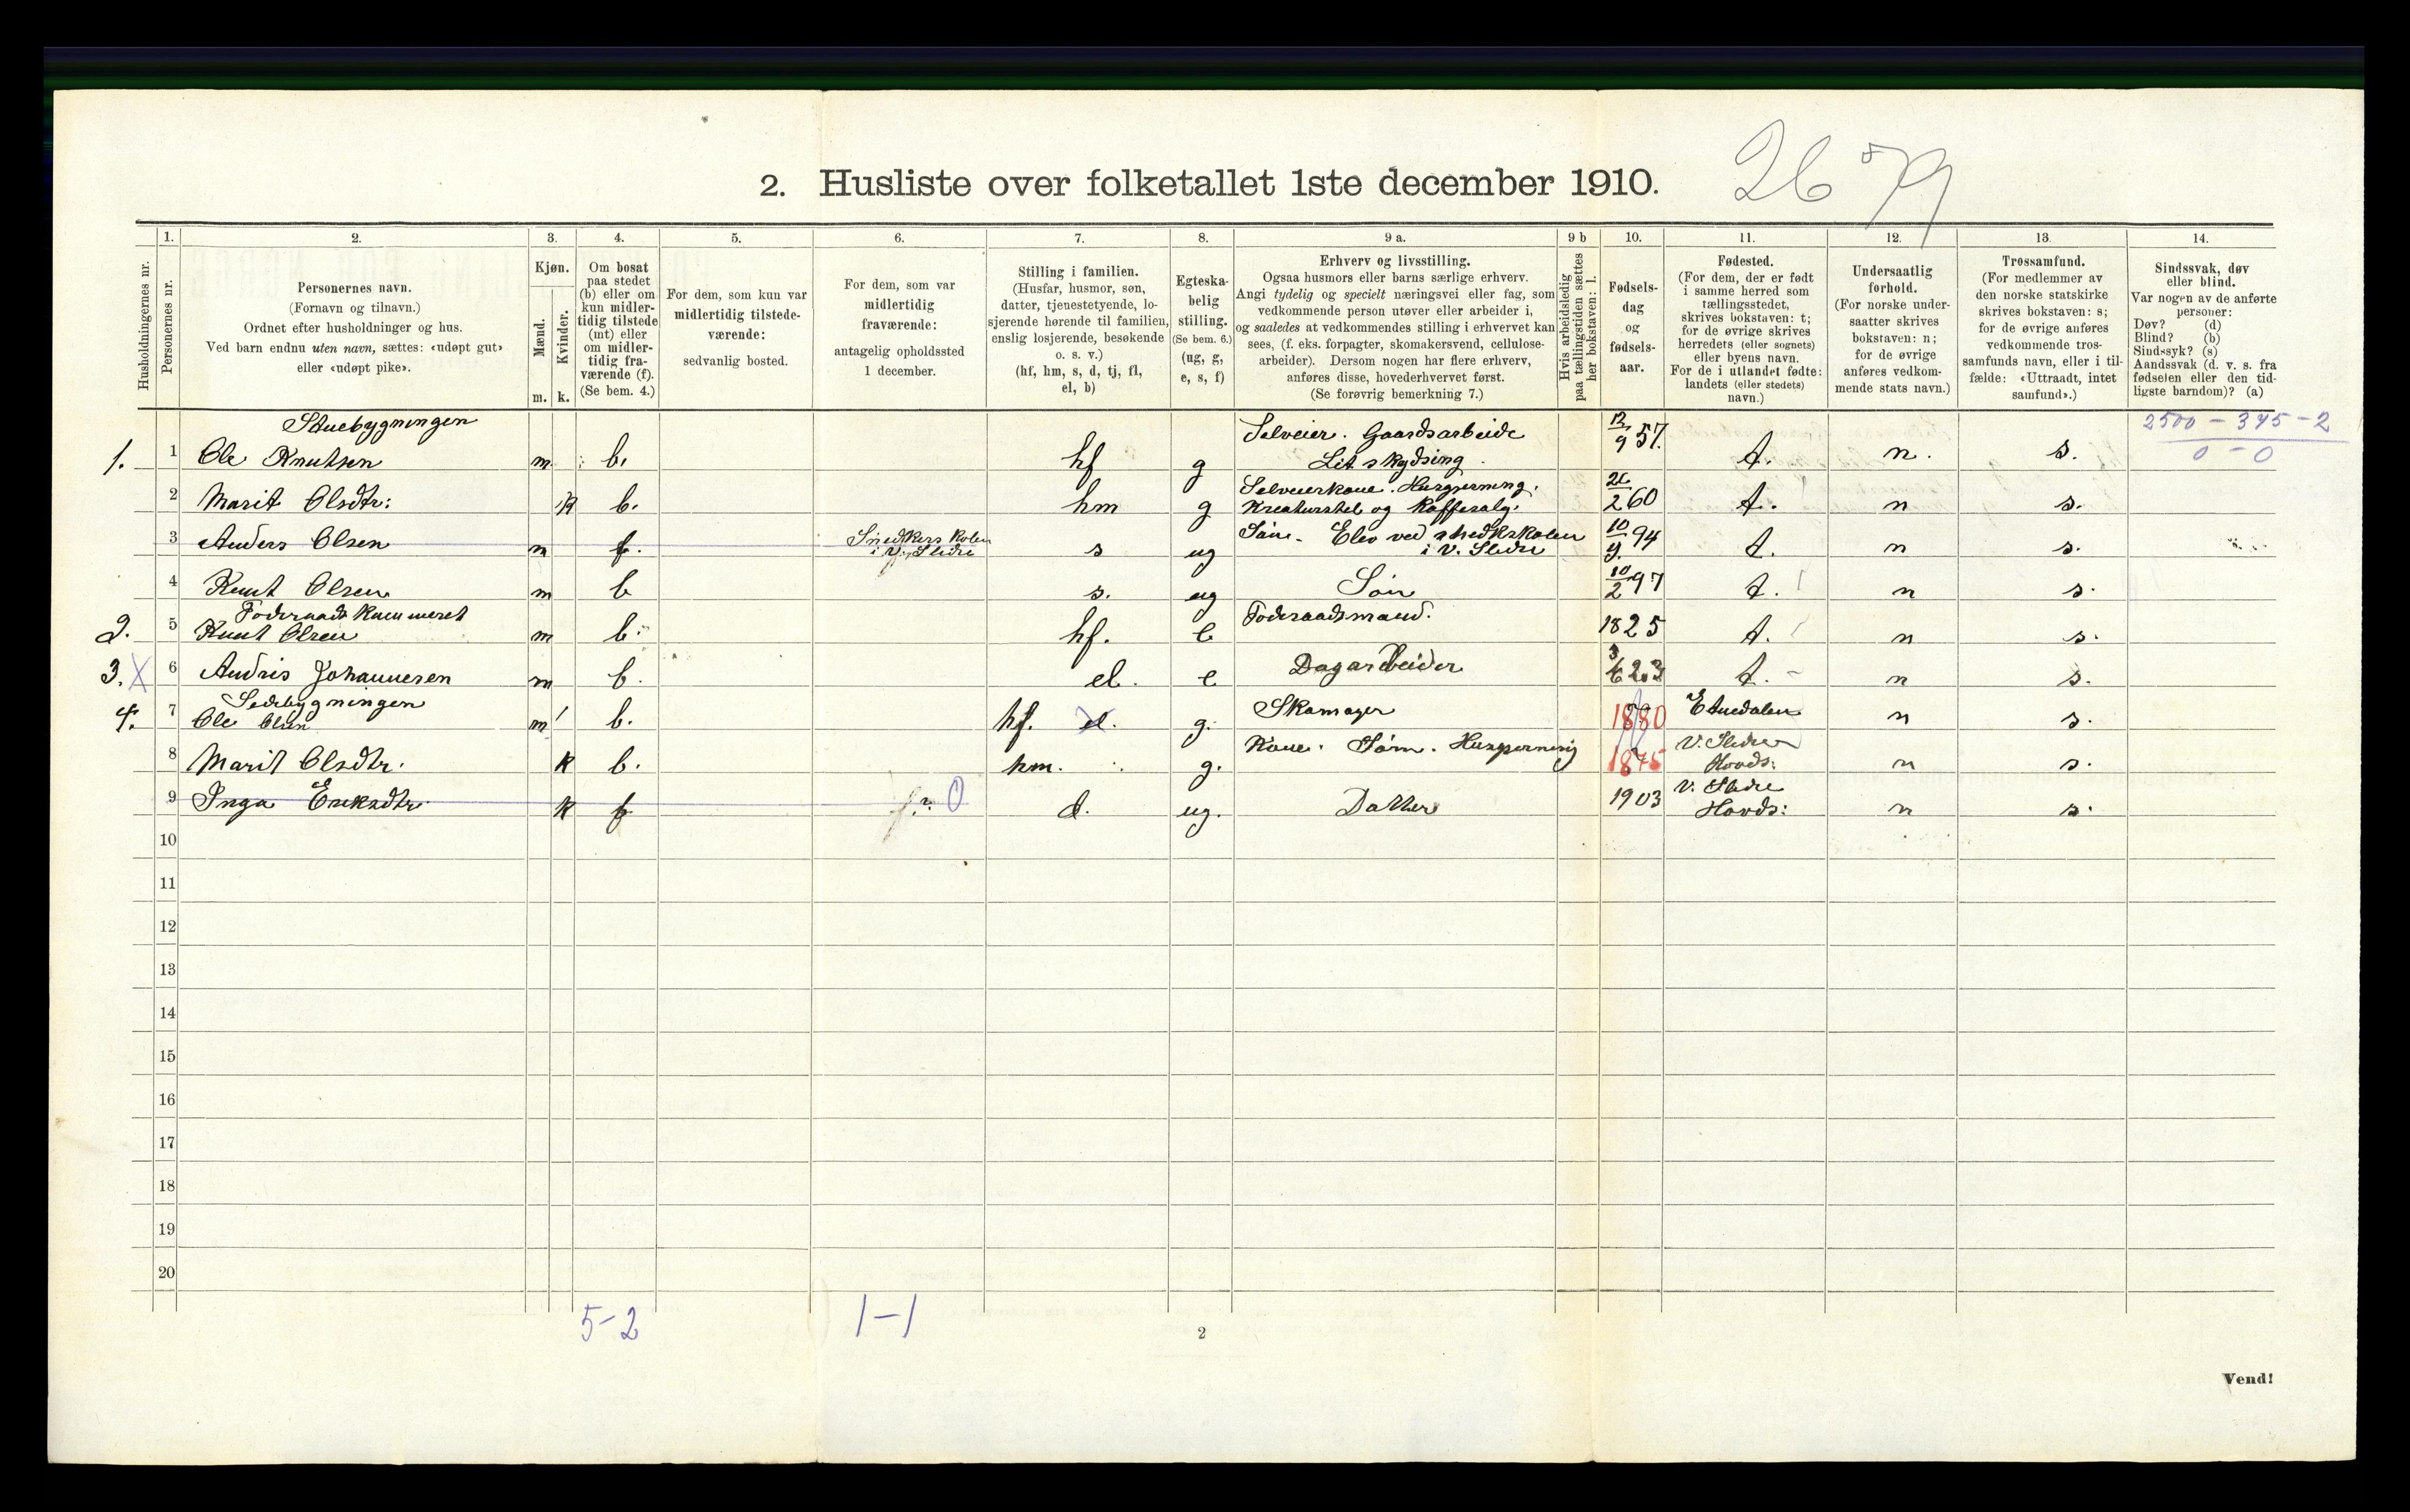 2. Husliste over folketallet 1ste december 1910.
26 79
Husholdningernes nr.
1.
Personernes nr.
2.
Personernes navn.
(Fornavn og tilnavn.)
Ordnet efter husholdninger og hus.
Ved barn endnu uten navn, sættes: «udøpt gut»
eller «udøpt pike».
3.
Kjøn.
Mænd.
Kvinder.
m. k.
4.
Om bosat
paa stedet
(b) eller om
kun midler-
tidig tilstede
(mt) eller
om midler-
tidig fra-
værende (f).
(Se bem. 4.)
5.
For dem, som kun var
midlertidig tilstede-
værende:
sedvanlig bosted.
6.
For dem, som var
midlertidig
fraværende:
antagelig opholdssted
1 december.
7.
Stilling i familien.
(Husfar, husmor, søn,
datter, tjenestetyende, lo-
sjerende hørende til familien,
enslig losjerende, besøkende
o. s. v.)
(hf, hm, s, d, tj, fl,
el, b)
8.
Egteska-
belig
stilling.
(Se bem. 6.)
(ug, g,
e, s, f)
9 a.
Erhverv og livsstilling.
Ogsaa husmors eller barns særlige erhverv.
Angi tydelig og specielt næringsvei eller fag, som
vedkommende person utøver eller arbeider i,
og saaledes at vedkommendes stilling i erhvervet kan
sees, (f. eks. forpagter, skomakersvend, cellulose-
arbeider). Dersom nogen har flere erhverv,
anføres disse, hovederhvervet først.
(Se forøvrig bemerkning 7.)
9 b
Hvis arbeidsledig
paa tællingstiden sættes
her bokstaven: l.
10.
Fødsels-
dag
og
fødsels-
aar.
11.
Fødested.
(For dem, der er født
i samme herred som
tællingsstedet,
skrives bokstaven: t;
for de øvrige skrives
herredets (eller sognets)
eller byens navn.
For de i utlandet fødte:
landets (eller stedets)
navn.)
12.
Undersaatlig
forhold.
(For norske under-
saatter skrives
bokstaven: n;
for de øvrige
anføres vedkom-
mende stats navn.)
13.
Trossamfund.
(For medlemmer av
den norske statskirke
skrives bokstaven: s;
for de øvrige anføres
vedkommende tros-
samfunds navn, eller i til-
fælde: «Uttraadt, intet
samfund».)
14.
Sindssvak, døv
eller blind.
Var nogen av de anførte
personer:
Døv? (d)
Blind? (b)
Sindssyk? (s)
Aandssvak (d. v. s. fra
fødselen eller den tid-
ligste barndom)? (a)
2500 - 375 - 2
0 - 0
Stuebygningen
1. 1 Ole Knutsen m b. hf g Selveier. Gaardsarbeide
Lit skydsing. 12/9 57. t. n. s.
2 Marit Olsdtr: k b. hm g Selveierkone. Husgjerning.
Kreaturstel og Kaffesalg. 26/2 60 t. n s.
3 Anders Olsen m f. Snedkerskolen
i V. Slidre s ug Søn. Elev ved snedkskolen
i V. Slidre 10/9 94 t. n s.
4 Knut Olsen m b s. ug Søn 10/2 97 t. n s.
Foderaadskammeret
2. 5 Knut Olsen m b. hf. e Foderaadsmand. 1825 t. n s.
3. X 6 Andris Johannesen m b. el. e Dagarbeider t. n s.
Sidebygningen
4. 7 Ole Olsen m b. hf. el. g. Skomager 1880 Etnedalen n s.
8 Marit Olsdtr. k b. hm. g. Kone. Søm. Husgjerning 1875 V. Slidre
Hovds: n s.
9 Inga Eriksdtr. k f ? 0 d. ug. Datter 1903 V. Slidre
Hovds: n s.
10
11
12
13
14
15
16
17
18
19
20
5-2 1-1
2
Vend!